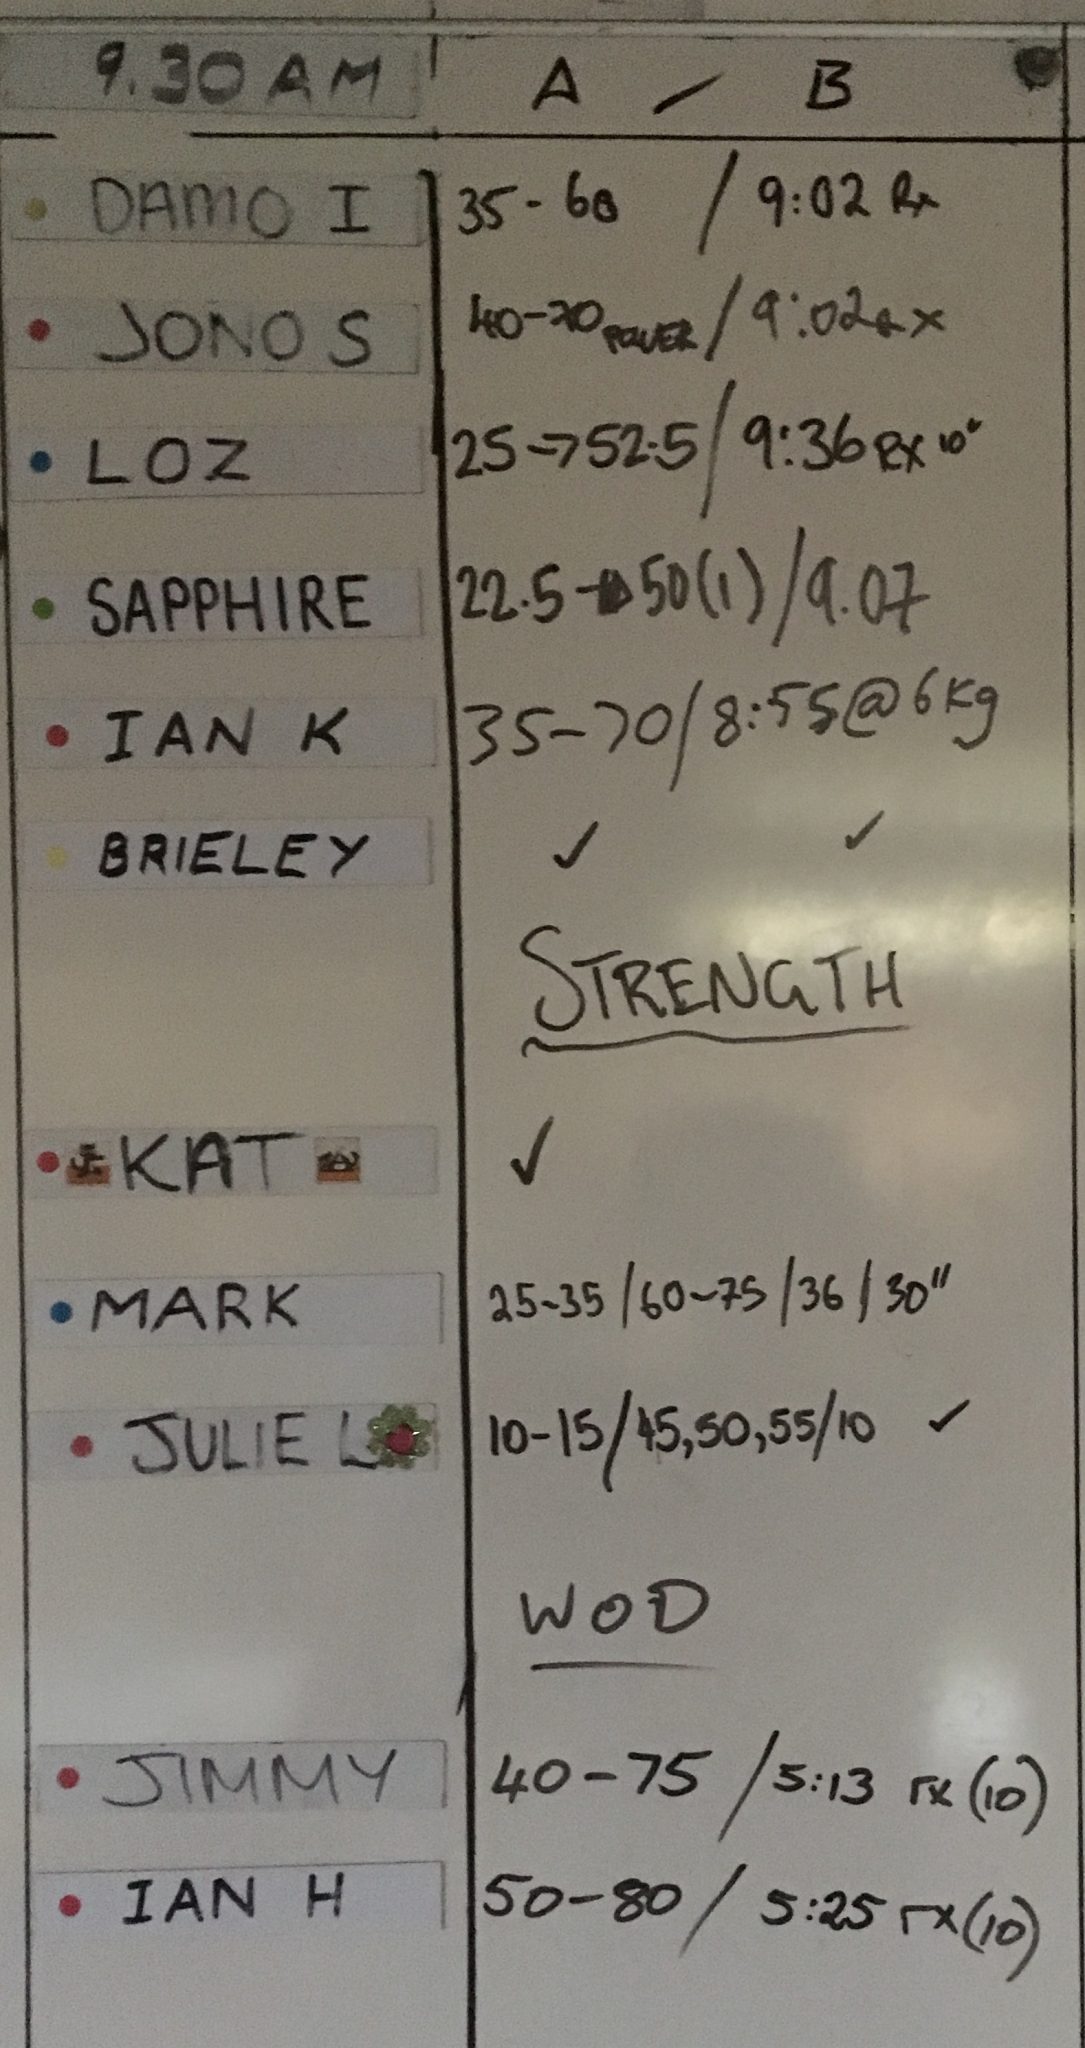 9.30 AM A / B
DAMO I 35 - 60 / 9:02 Rx
JONO S 40-70 POWER / 9:02 Rx
LOZ 25 → 52.5 / 9:36 RX 10"
SAPPHIRE 22.5 → 50(1) / 9.07
IAN K 35-70 / 8:55 @ 6kg
BRIELEY ✓ ✓
STRENGTH
KAT ✓
MARK 25-35 / 60-75 / 36 / 30"
JULIE L 10-15 / 45, 50, 55 / 10 ✓
WOD
JIMMY 40-75 / 5:13 rx (10)
IAN H 50-80 / 5:25 rx (10)